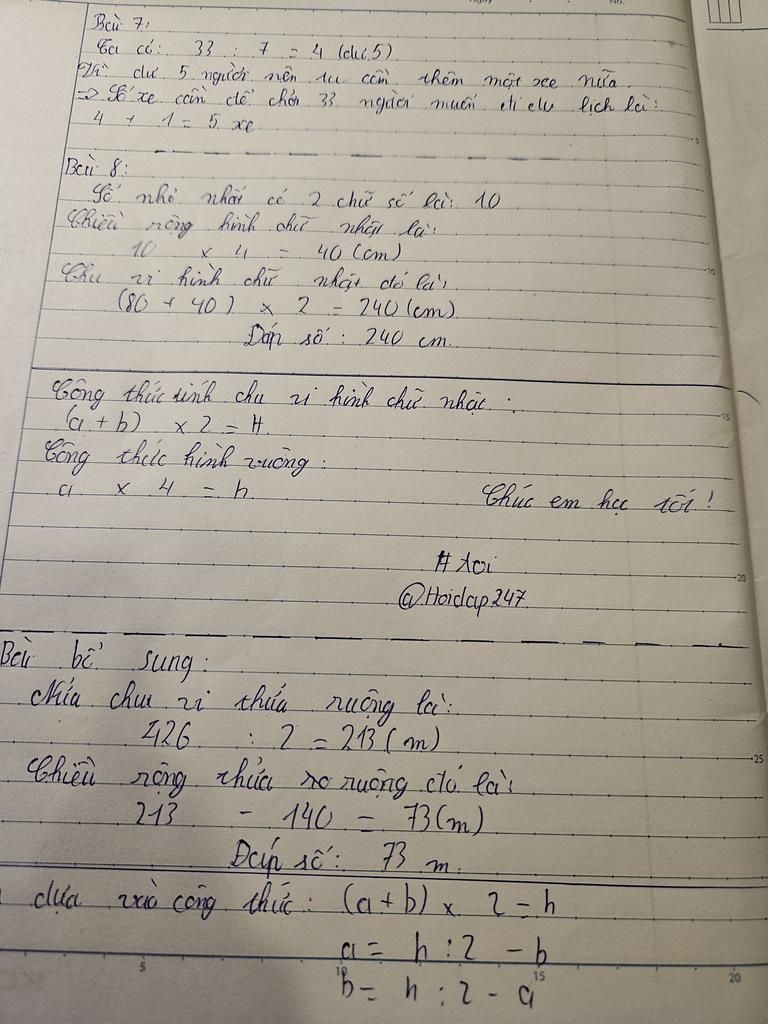 Bài 7:
Ta có: 33 : 7 = 4 (dư 5)
Vì dư 5 người nên ta cần thêm một xe nữa.
=> Số xe cần để chở 33 người muốn đi du lịch là:
4 + 1 = 5 xe
Bài 8:
Số nhỏ nhất có 2 chữ số là: 10
Chiều rộng hình chữ nhật là:
10 x 4 = 40 (cm)
Chu vi hình chữ nhật đó là:
(80 + 40) x 2 = 240 (cm)
Đáp số: 240 cm.
Công thức tính chu vi hình chữ nhật:
(a + b) x 2 = H.
Công thức hình vuông:
a x 4 = h.
Chúc em học tốt!
# toi
@Hoidap247.
Bài bổ sung:
Nửa chu vi thửa ruộng là:
426 : 2 = 213 (m)
Chiều rộng thửa ruộng đó là:
213 - 140 = 73 (m)
Đáp số: 73 m.
dựa vào công thức: (a+b) x 2 = h
a = h : 2 - b
b = h : 2 - a
5
10
15
20
25
5
10
15
20